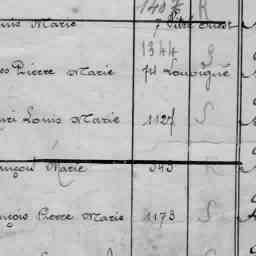 1407 R
ouis Marie 7 Vitré Ouest
1344 G
es Pierre Marie 74 Louvigné
ri Louis Marie 1127 S
ançois Marie 343 R
nçois Pierre Marie 1173 S